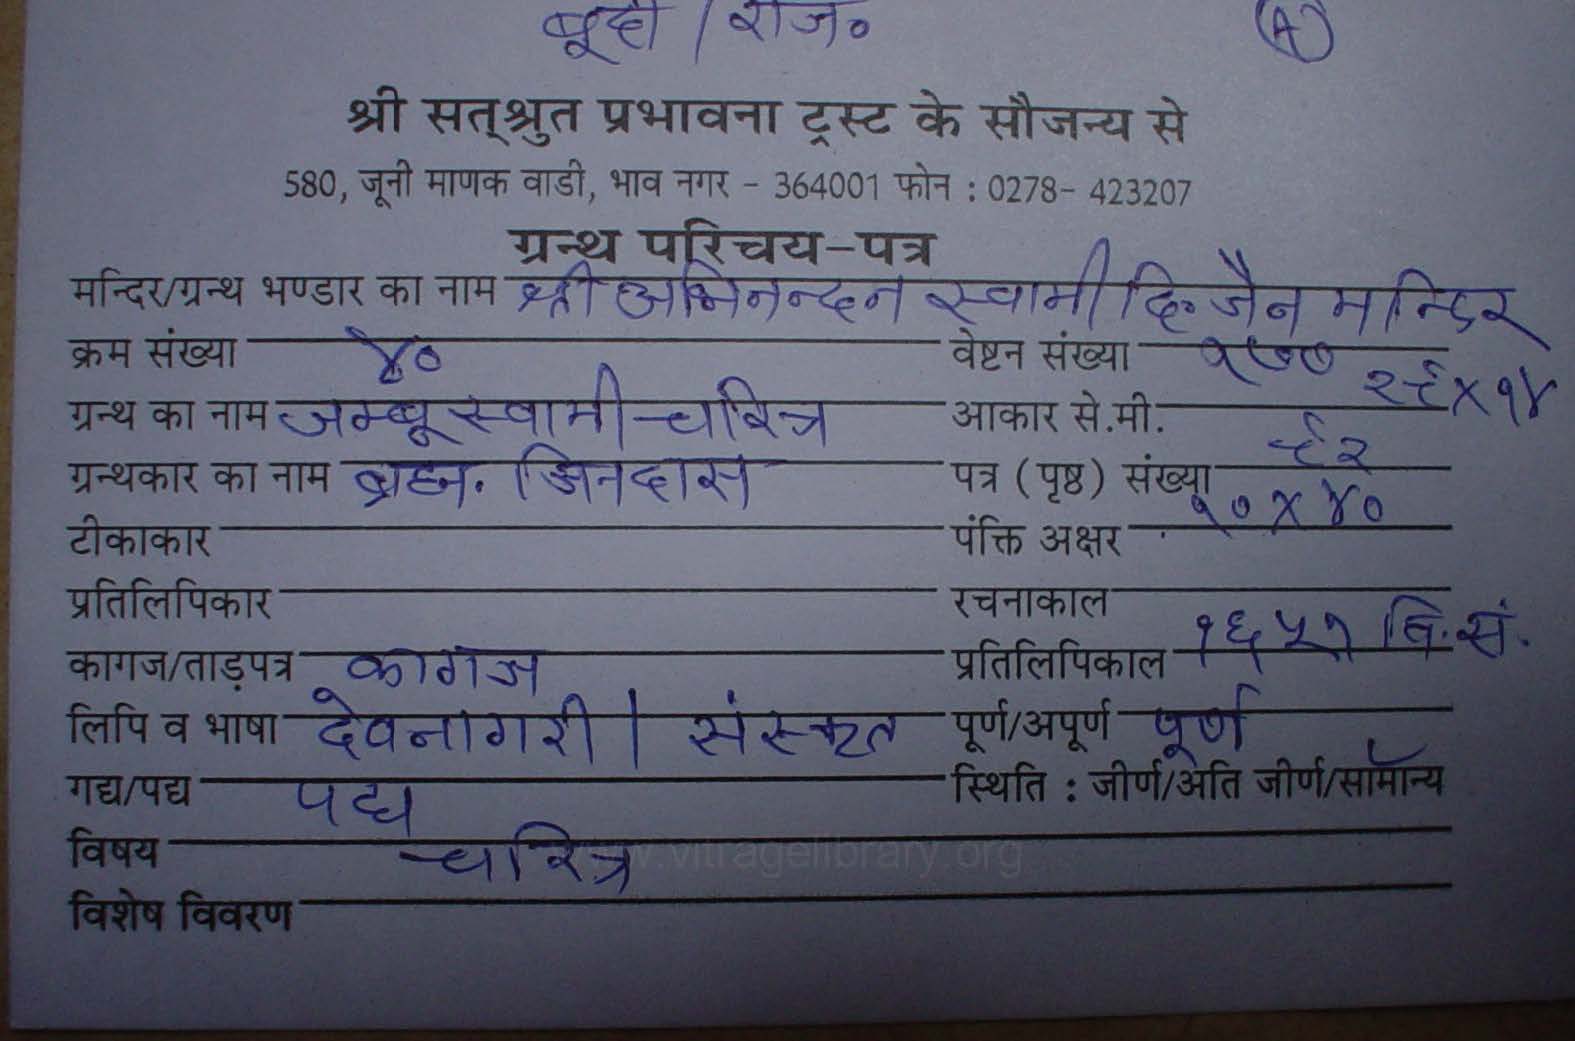 बून्दी / राज॰ A
श्री सत्श्रुत प्रभावना ट्रस्ट के सौजन्य से
580, जूनी माणक वाडी, भाव नगर - 364001 फोन : 0278- 423207
ग्रन्थ परिचय-पत्र
मन्दिर/ग्रन्थ भण्डार का नाम श्री अभिनन्दन स्वामी दि॰ जैन मन्दिर
क्रम संख्या ४० वेष्टन संख्या
ग्रन्थ का नाम जम्बू स्वामी चरित्र आकार से.मी. २९×१४
ग्रन्थकार का नाम ब्रह्म. जिनदास पत्र (पृष्ठ) संख्या ९२
टीकाकार पंक्ति अक्षर १०×४०
प्रतिलिपिकार रचनाकाल
कागज/ताड़पत्र कागज प्रतिलिपिकाल १६५१ वि.सं.
लिपि व भाषा देवनागरी | संस्कृत पूर्ण/अपूर्ण पूर्ण
गद्य/पद्य पद्य स्थिति : जीर्ण/अति जीर्ण/सामान्य
विषय चरित्र
www.vitragelibrary.org
विशेष विवरण